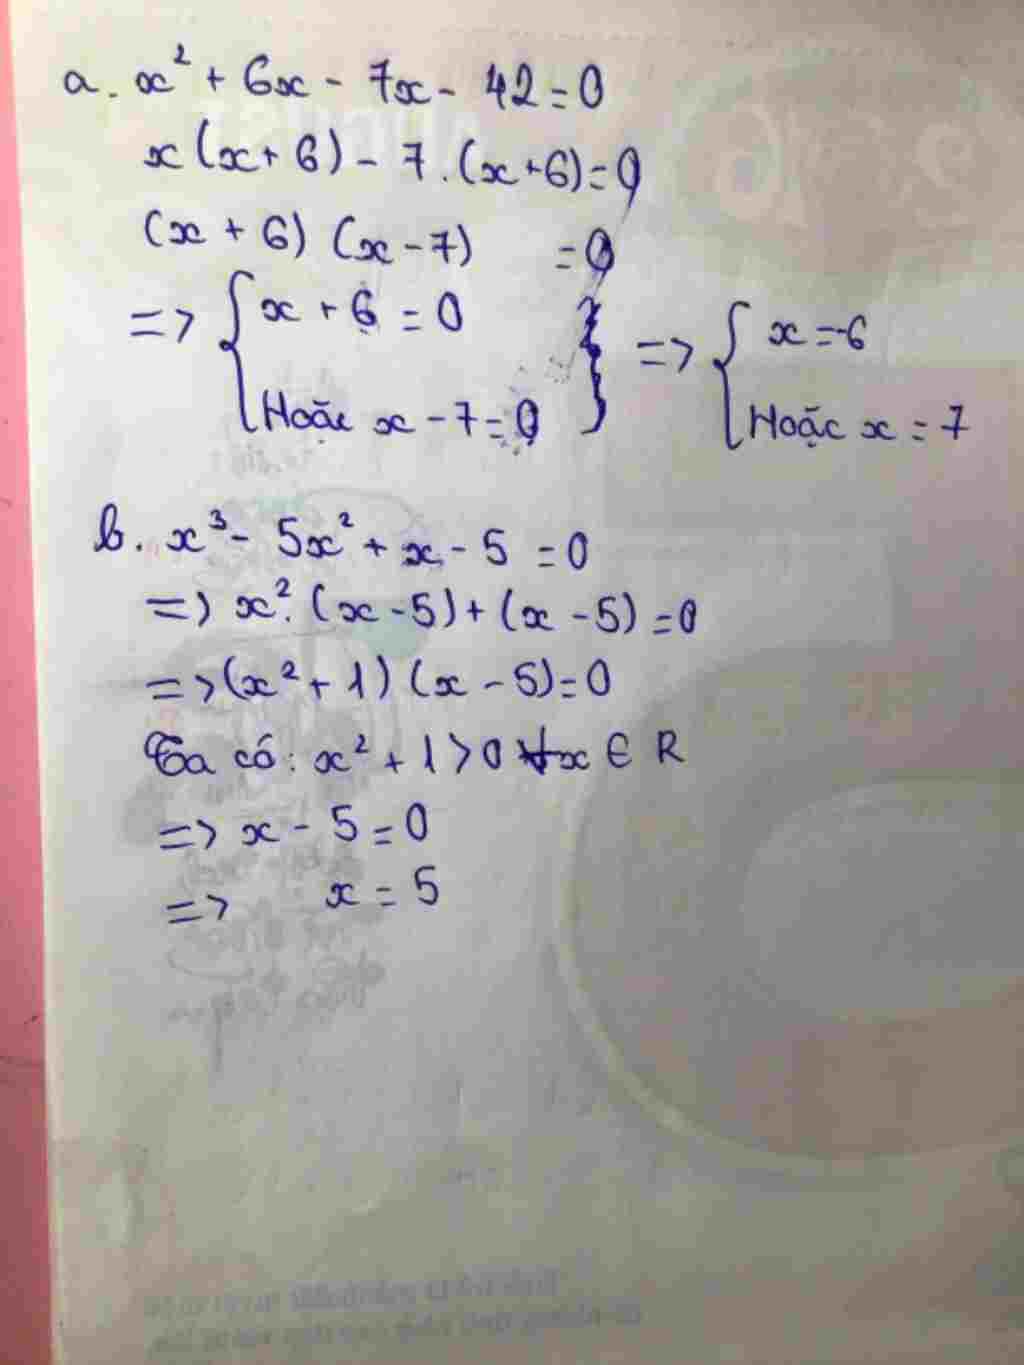 a. x² + 6x - 7x - 42 = 0
x(x + 6) - 7 . (x + 6) = 0
(x + 6) (x - 7) = 0
=> { x + 6 = 0 } => { x = -6
Hoặc x - 7 = 0 Hoặc x = 7
b. x³ - 5x² + x - 5 = 0
=> x² . (x - 5) + (x - 5) = 0
=> (x² + 1) (x - 5) = 0
Ta có : x² + 1 > 0 ∀x ∈ R
=> x - 5 = 0
=> x = 5